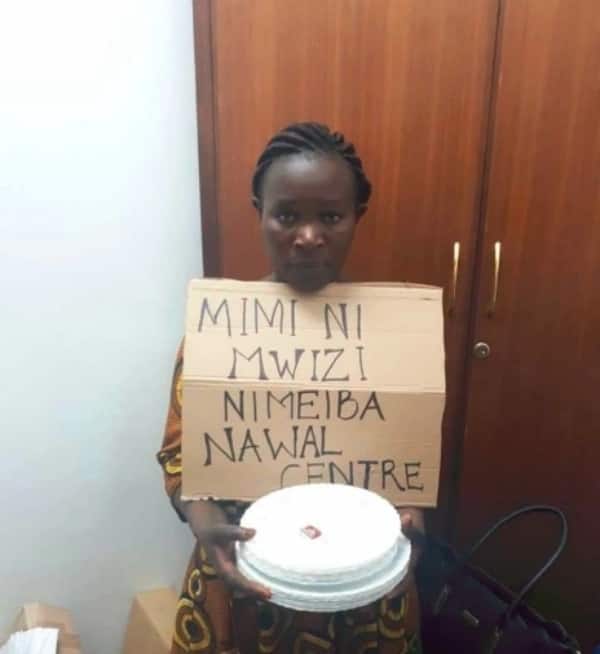 MIMI NI
MWIZI
NIMEIBA
NAWAL
CENTRE